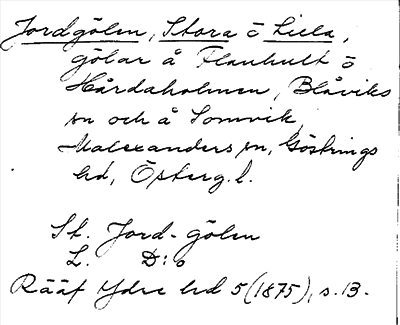 Jordgölen, Stora o Lilla,
gölar å Flankult o
Hårdaholmen, Blåviks
sn och å Somvik,
Malexanders sn, Göstrings
hd, Österg. l.
St. Jord-gölen
L. D:o
Rääf Ydre hd 5 (1875), s. 13.